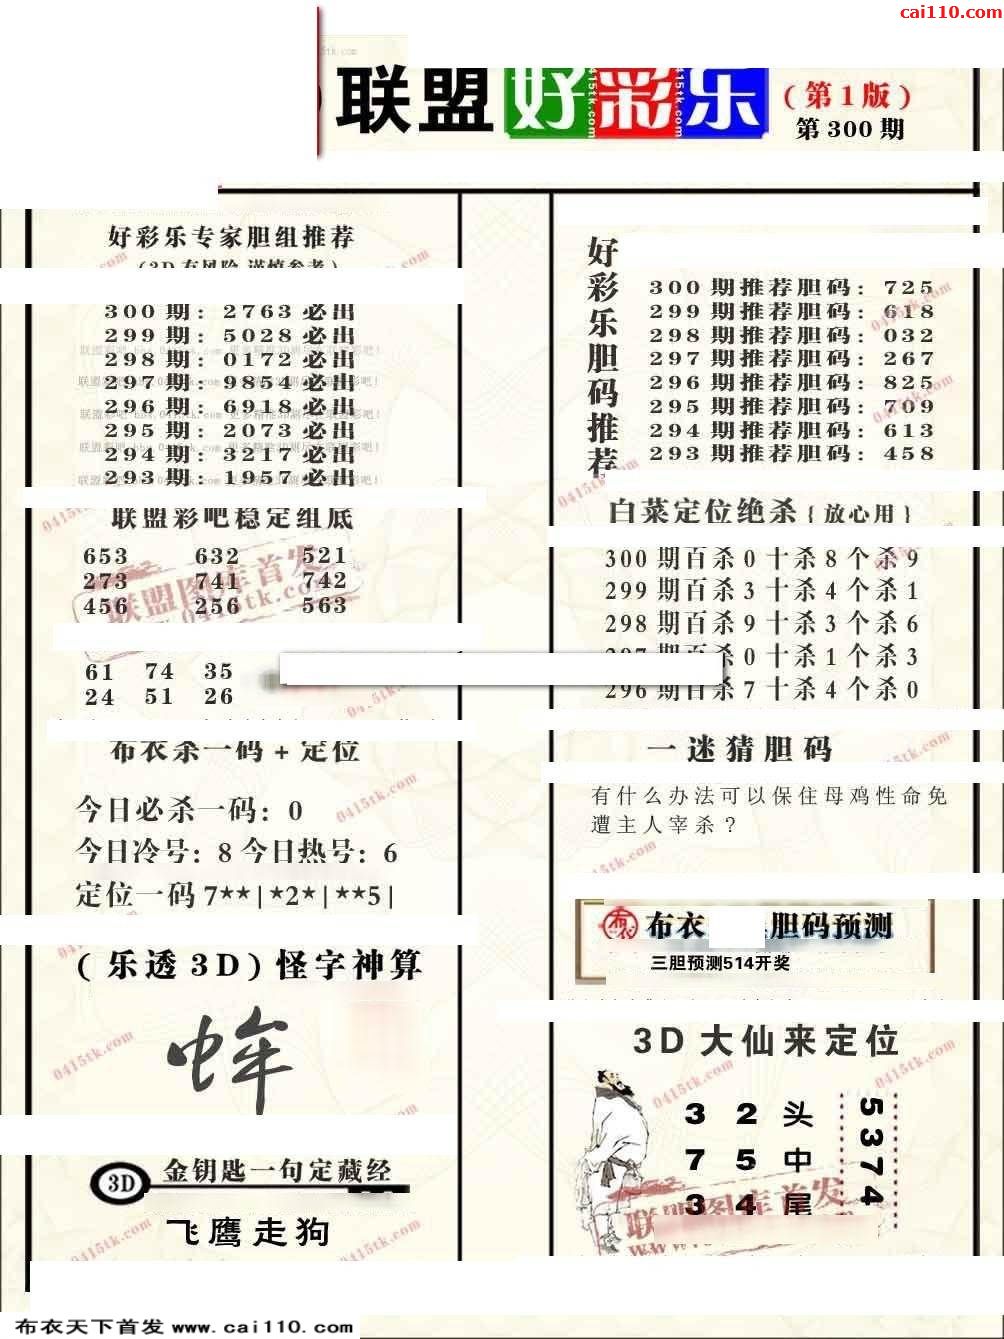 cai110.com
联盟好彩乐
(第1版)
第300期
好彩乐专家胆组推荐
(3D有风险 谨慎参考)
300期: 2763必出
299期: 5028必出
298期: 0172必出
297期: 9854必出
296期: 6918必出
295期: 2073必出
294期: 3217必出
293期: 1957必出
联盟彩吧稳定组底
653 632 521
273 741 742
456 256 563
61 74 35
24 51 26
布衣杀一码+定位
今日必杀一码: 0
今日冷号: 8 今日热号: 6
定位一码 7**|*2*|**5|
(乐透3D)怪字神算
3D
金钥匙一句定藏经
飞鹰走狗
好彩乐胆码推荐
300期推荐胆码: 725
299期推荐胆码: 618
298期推荐胆码: 032
297期推荐胆码: 267
296期推荐胆码: 825
295期推荐胆码: 709
294期推荐胆码: 613
293期推荐胆码: 458
白菜定位绝杀{放心用}
300期百杀0十杀8个杀9
299期百杀3十杀4个杀1
298期百杀9十杀3个杀6
297期百杀0十杀1个杀3
296期百杀7十杀4个杀0
一迷猜胆码
有什么办法可以保住母鸡性命免
遭主人宰杀?
布衣 胆码预测
三胆预测514开奖
3D大仙来定位
3 2 头
7 5 中
3 4 尾
5374
联盟图库首发
0415tk.com
布衣天下首发 www.cai110.com